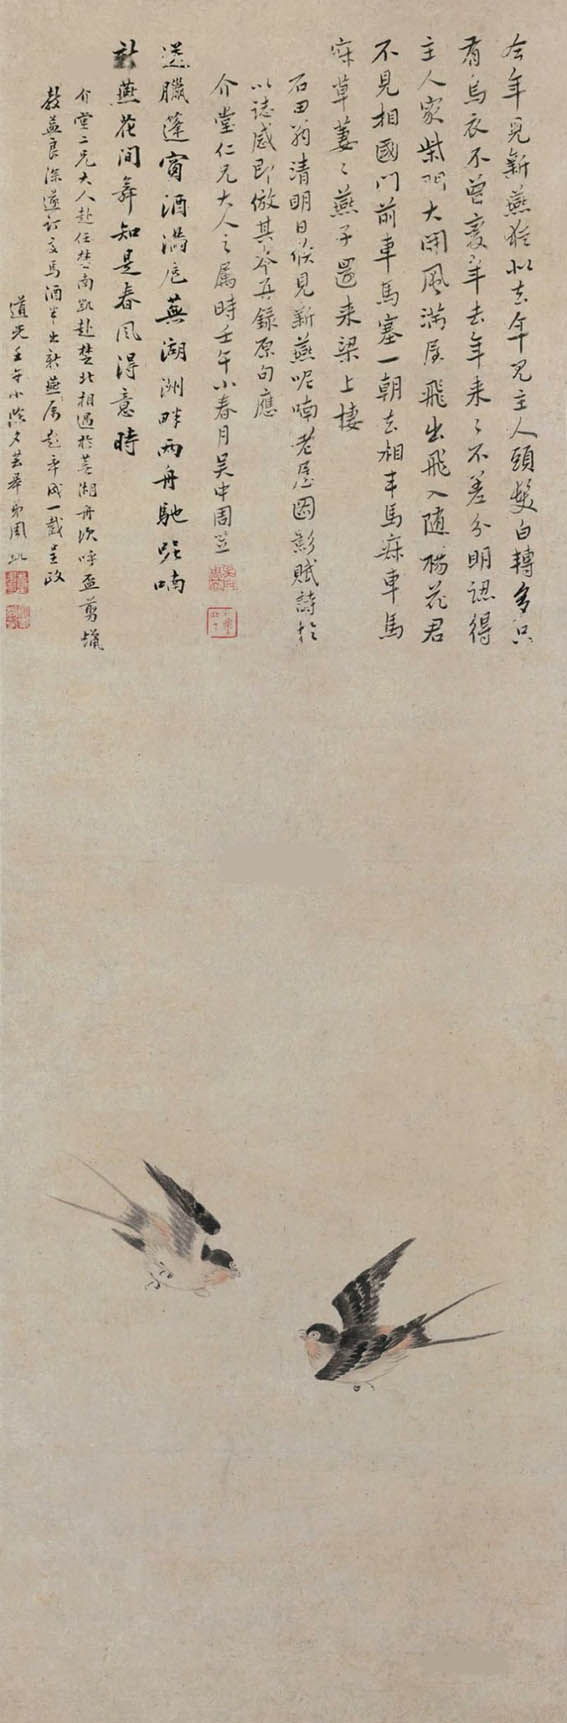 今年見新燕猶似去年見主人頭髮白轉多只
有烏衣不曾變年去年來來不差分明認得
主人家柴門大開風滿屋飛出飛入隨楊花君
不見相國門前車馬塞一朝去相車馬寂車馬
寂草萋萋燕子還來梁上棲
石田翁清明日偶見新燕呢喃老屋因影賦詩於
以誌感即倣其本并錄原句應
介堂仁兄大人之属時壬午小春月吳中周笠
送臘蓬窗酒滿卮蕪湖洲畔兩舟馳呢喃
新燕花間舞知是春風得意時
介堂二兄大人赴任楚南凱赴楚北相遇於蕪湖舟次呼盃剪蠟
教益良深遂訂交焉酒半出新燕屬題率成一截呈政
道光壬午小除夕芸皋弟周凱